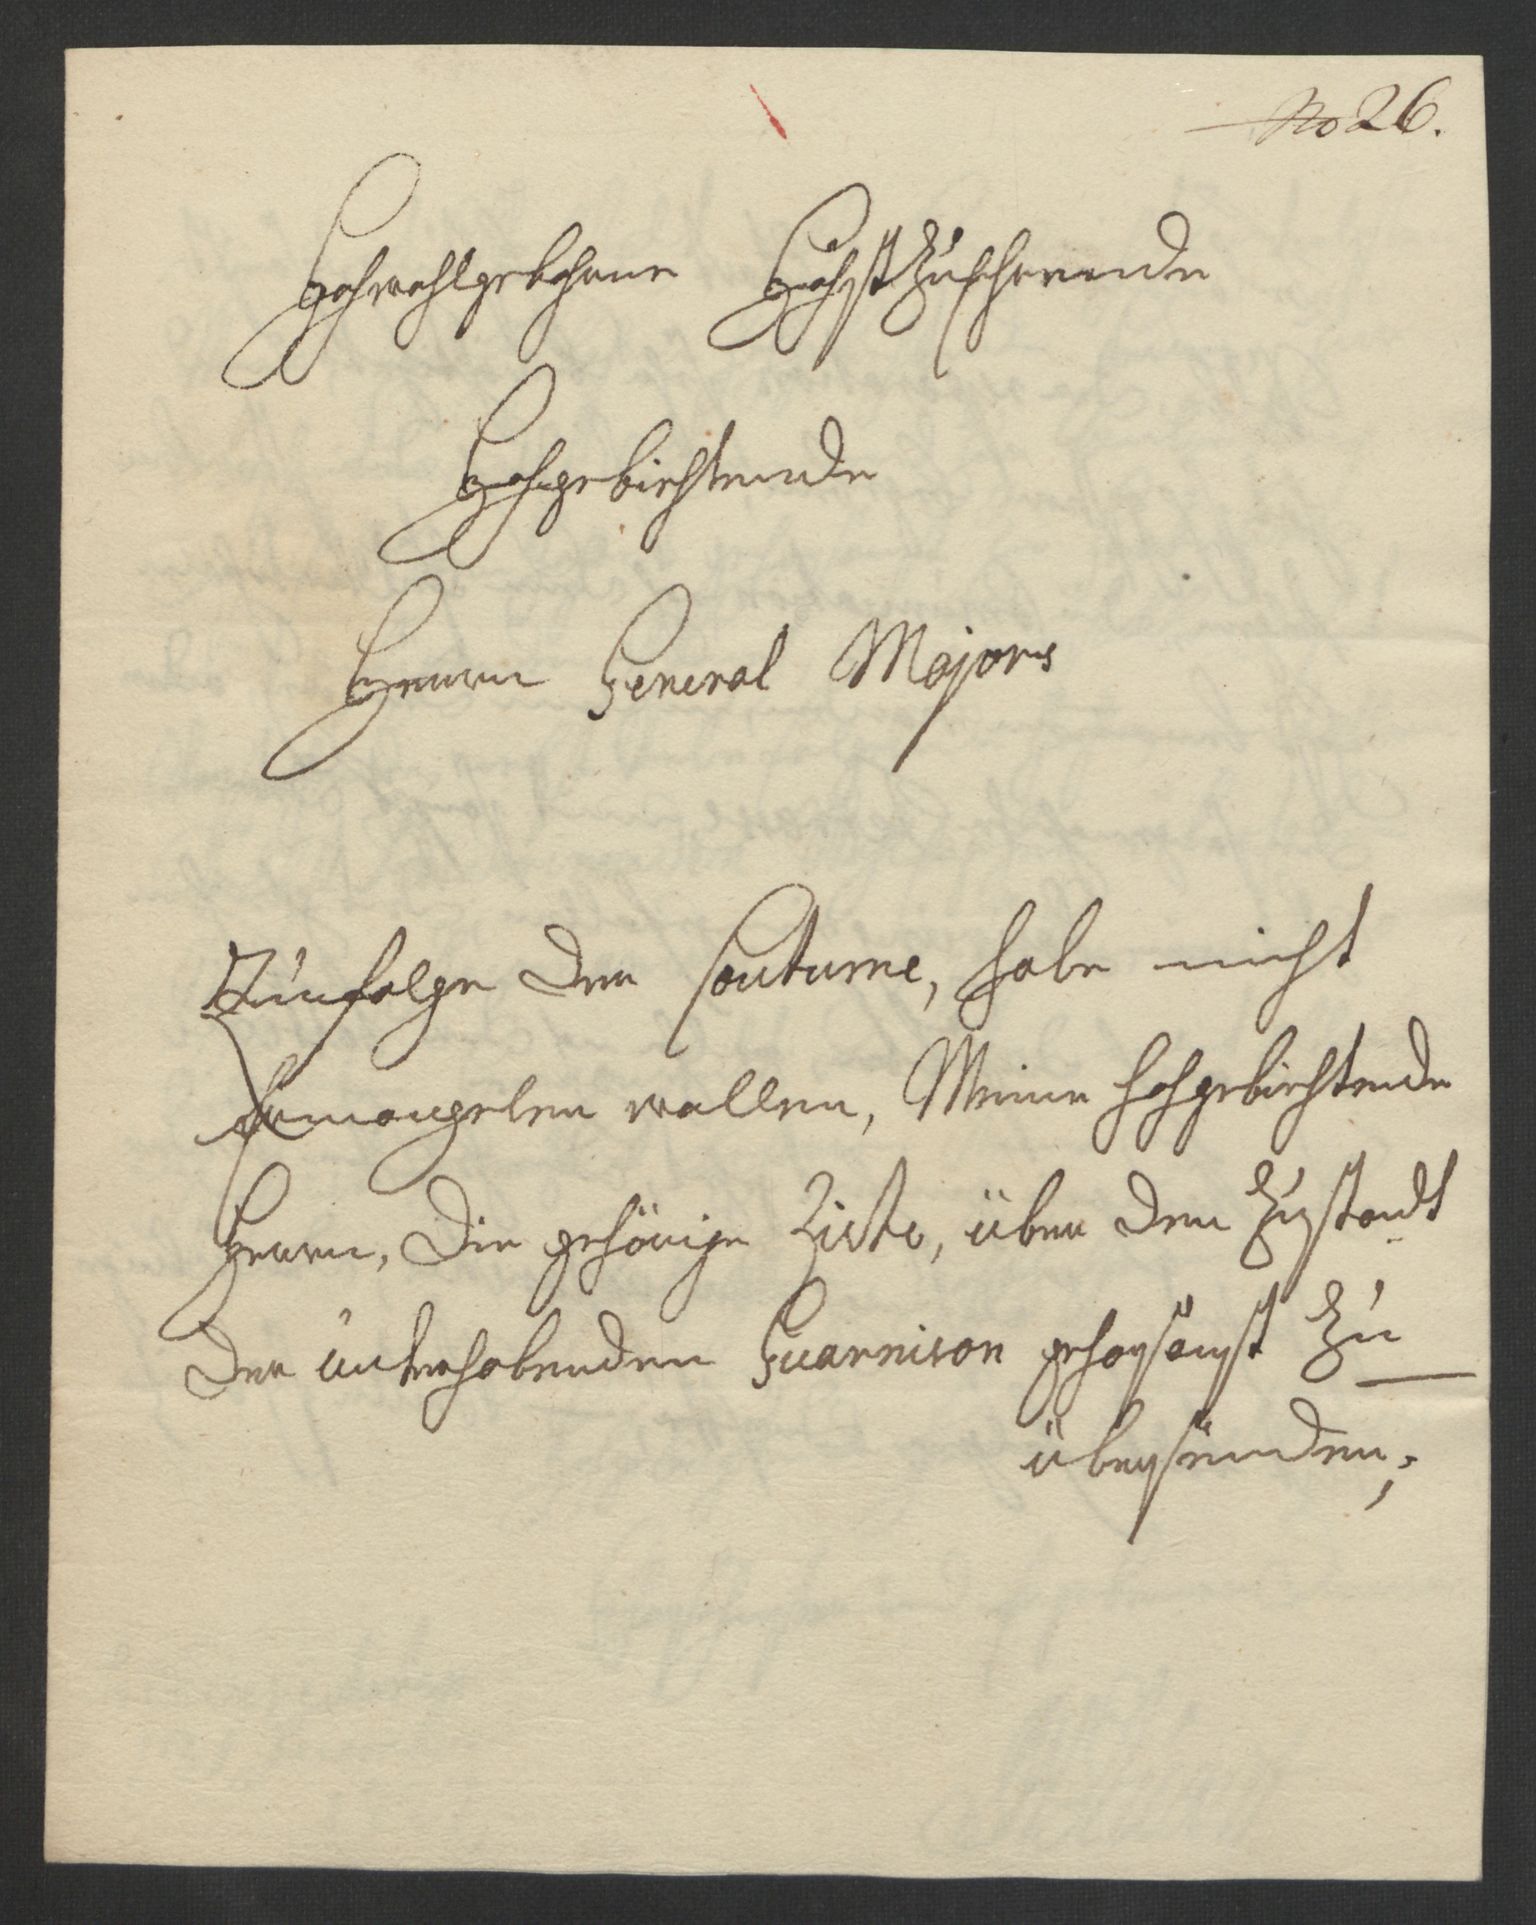 No 26.
Hochwohlgebohrne Höchst Zuehrende
Hochgebiethende
Herrn General Majors
Zu folge der Coutume, habe nicht
ermangelen wollen, Meine hochgebiethende
Herrn, die gehörige Liste, über den Zustandt
der unterhabenden Guarnison gehorsamst zu
übersenden;